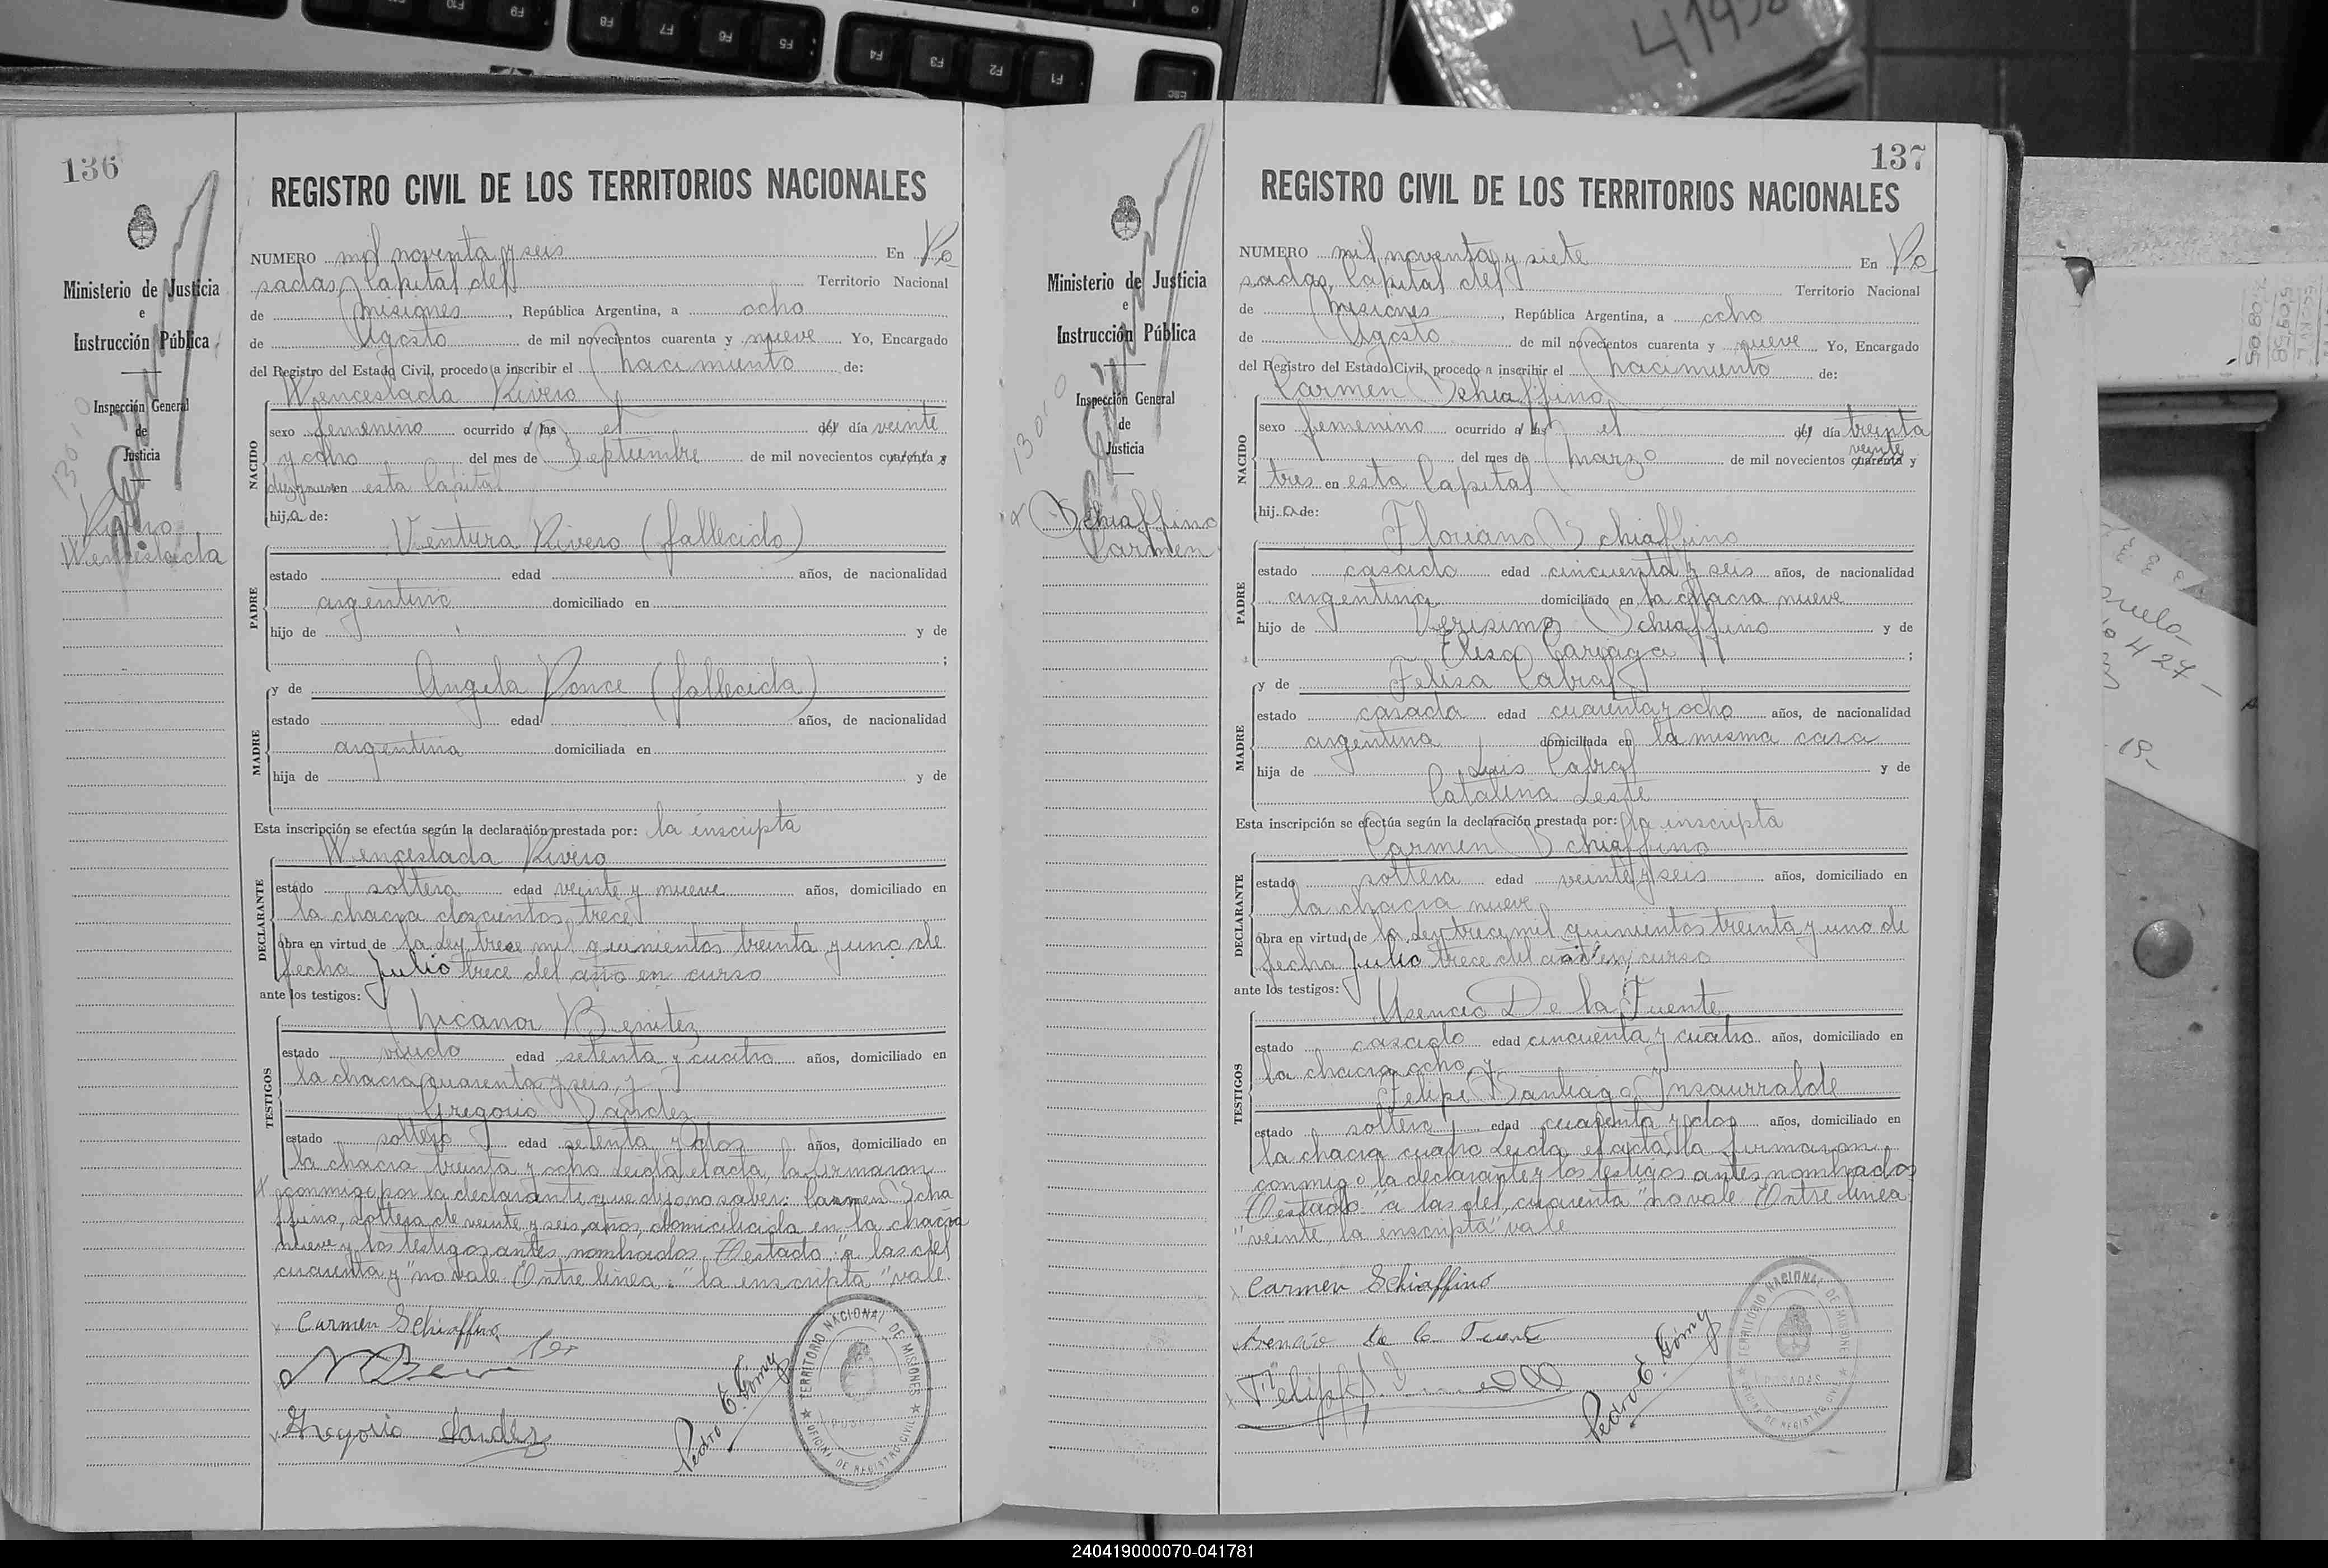 136
REGISTRO CIVIL DE LOS TERRITORIOS NACIONALES
Ministerio de Justicia
e
Instrucción Pública
Inspección General
de
Justicia
Rivero
Wenceslada
NUMERO mil noventa y seis En Po
sadas, Capital del Territorio Nacional
de Misiones, República Argentina, a ocho
de Agosto de mil novecientos cuarenta y nueve Yo, Encargado
del Registro del Estado Civil, procedo a inscribir el nacimiento de:
Wenceslada Rivero
NACIDO
sexo femenino ocurrido a las el del día veinte
y ocho del mes de Septiembre de mil novecientos cuarenta y
diez y nueve en esta Capital
hija de:
Ventura Rivero (fallecido)
PADRE
estado edad años, de nacionalidad
argentino domiciliado en
hijo de y de
;
y de Angela Ponce (fallecida)
MADRE
estado edad años, de nacionalidad
argentina domiciliada en
hija de y de
Esta inscripción se efectúa según la declaración prestada por: la inscripta
Wenceslada Rivero
DECLARANTE
estado soltera edad veinte y nueve años, domiciliado en
la chacra doscientos trece
obra en virtud de la Ley trece mil quinientos treinta y uno de
fecha Julio trece del año en curso
ante los testigos:
Nicanor Benitez
TESTIGOS
estado viudo edad setenta y cuatro años, domiciliado en
la chacra cuarenta y seis, y
Gregorio Sandez
estado soltero edad setenta y dos años, domiciliado en
la chacra treinta y ocho Leida el acta, la firmaron
conmigo por la declarante que dijo no saber: Carmen Schia
ffino, soltera de veinte y seis años, domiciliada en la chacra
nueve y los testigos antes nombrados. Testado: "a las del
cuarenta y" no vale. Entre linea: "la inscripta" vale.
Carmen Schiaffino
Gregorio Sandez
Pedro E. Gómy
TERRITORIO NACIONAL DE MISIONES
OFICINA DE REGISTRO CIVIL
137
REGISTRO CIVIL DE LOS TERRITORIOS NACIONALES
Ministerio de Justicia
e
Instrucción Pública
Inspección General
de
Justicia
Schiaffino
Carmen
NUMERO mil noventa y siete En Po
sadas, Capital del Territorio Nacional
de Misiones, República Argentina, a ocho
de Agosto de mil novecientos cuarenta y nueve Yo, Encargado
del Registro del Estado Civil, procedo a inscribir el nacimiento de:
Carmen Schiaffino
NACIDO
sexo femenino ocurrido a las el del día treinta
veinte
del mes de Marzo de mil novecientos cuarenta y
tres en esta Capital
hija de:
Floriano Schiaffino
PADRE
estado casado edad cincuenta y seis años, de nacionalidad
argentina domiciliado en la chacra nueve
hijo de Verisimo Schiaffino y de
Elisa Cariaga ;
y de Felisa Cabral
MADRE
estado casada edad cuarenta y ocho años, de nacionalidad
argentina domiciliada en la misma casa
hija de Luis Cabral y de
Catalina Leste
Esta inscripción se efectúa según la declaración prestada por: la inscripta
Carmen Schiaffino
DECLARANTE
estado soltera edad veinte y seis años, domiciliado en
la chacra nueve
obra en virtud de la Ley trece mil quinientos treinta y uno de
fecha Julio trece del año en curso
ante los testigos:
Asencio De la Fuente
TESTIGOS
estado casado edad cincuenta y cuatro años, domiciliado en
la chacra ocho, y
Felipe Santiago Insaurralde
estado soltero edad cuarenta y dos años, domiciliado en
la chacra cuatro Leida el acta, la firmaron
conmigo la declarante y los testigos antes nombrados
Testado: "a las del, cuarenta" no vale. Entre linea:
"veinte, la inscripta" vale
Carmen Schiaffino
Asencio de la Fuente
Pedro E. Gómy
TERRITORIO NACIONAL DE MISIONES
POSADAS
OFICINA DE REGISTRO CIVIL
240419000070-041781